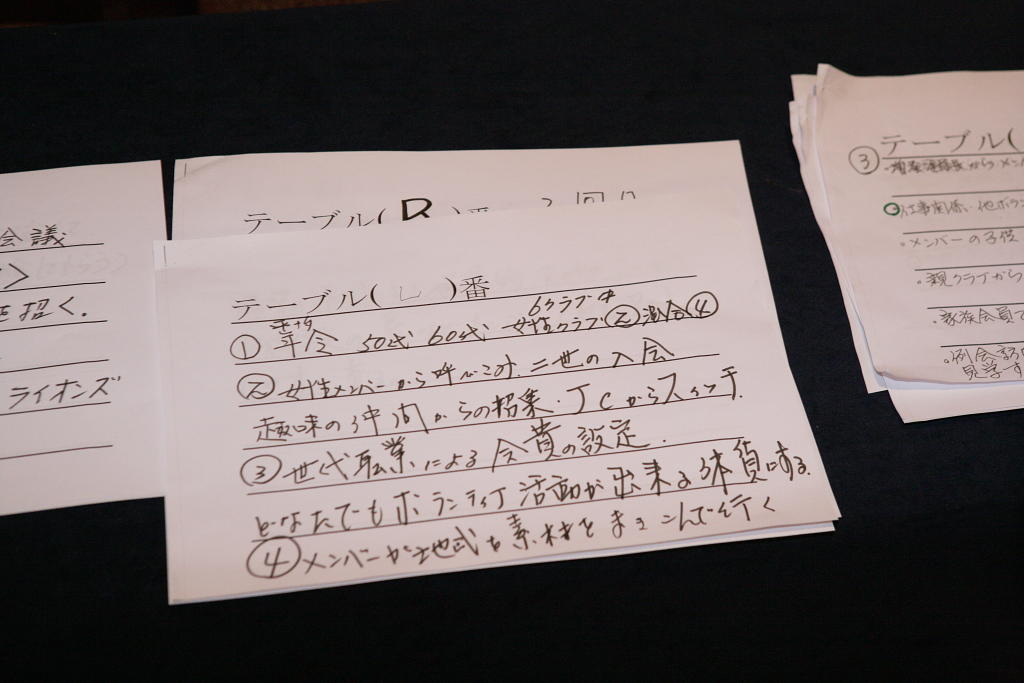 会議
を招く.
ライオンズ
テーブル( B )番
テーブル( し )番
6クラブ中
① 年令 50代 60代 女性クラブ② 混合④
② 女性メンバーから呼びこみ. 二世の入会
趣味の仲間からの招集・JCからスイッチ.
③ 世代職業による会費の設定.
どなたでもボランティア活動が出来る体質にする.
④ メンバーが地域を素材をまきこんで行く
テーブル(
③
仕事関係・他ボラン
・メンバーの子供
・親クラブから
・家族会員で
・例会訪
見学す